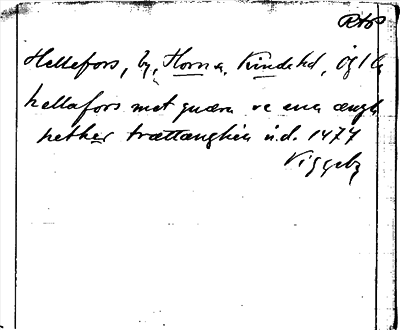 RAP
Hellefors, by, Horna, Kinda hd, Ög l
hellafors met quærn oc ena ængh
hether trættænghin u.d. 1474
Viggeby